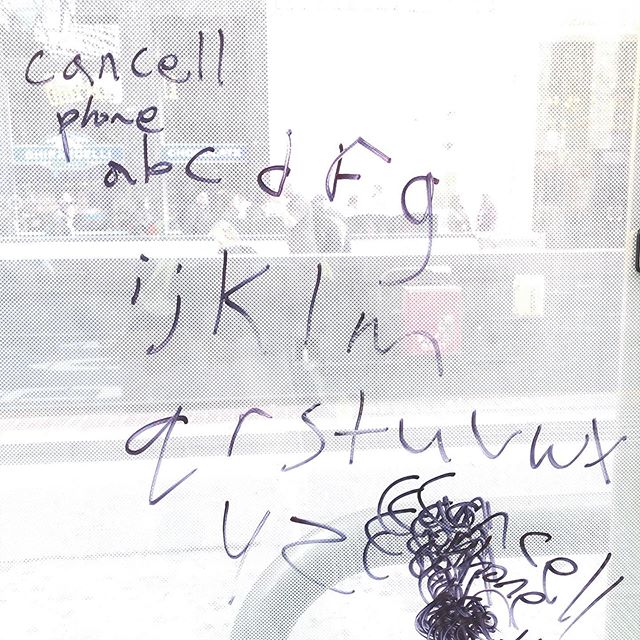 cancell
phone
abcd f g
ijklm
qrstuvwx
yz